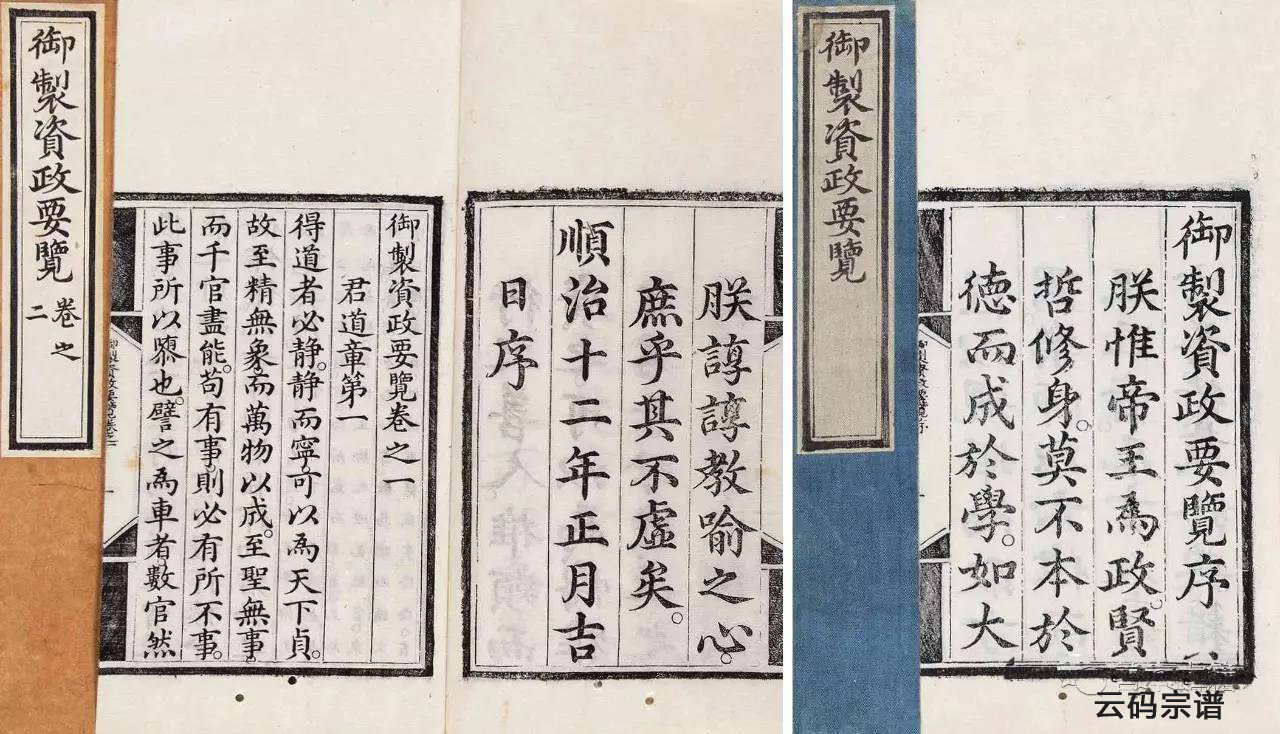 御製資政要覽序
朕惟帝王爲政。賢
哲修身。莫不本於
德而成於學。如大
御製資政要覽
朕諄諄教喻之心。
庶乎其不虛矣。
順治十二年正月吉
日序
御製資政要覽卷之一
君道章第一
得道者必静。静而寧。可以爲天下貞。
故至精無象。而萬物以成。至聖無事。
而千官盡能。苟有事。則必有所不事。
此事所以隳也。譬之爲車者。數官然
御製資政要覽 卷之二
云码宗谱